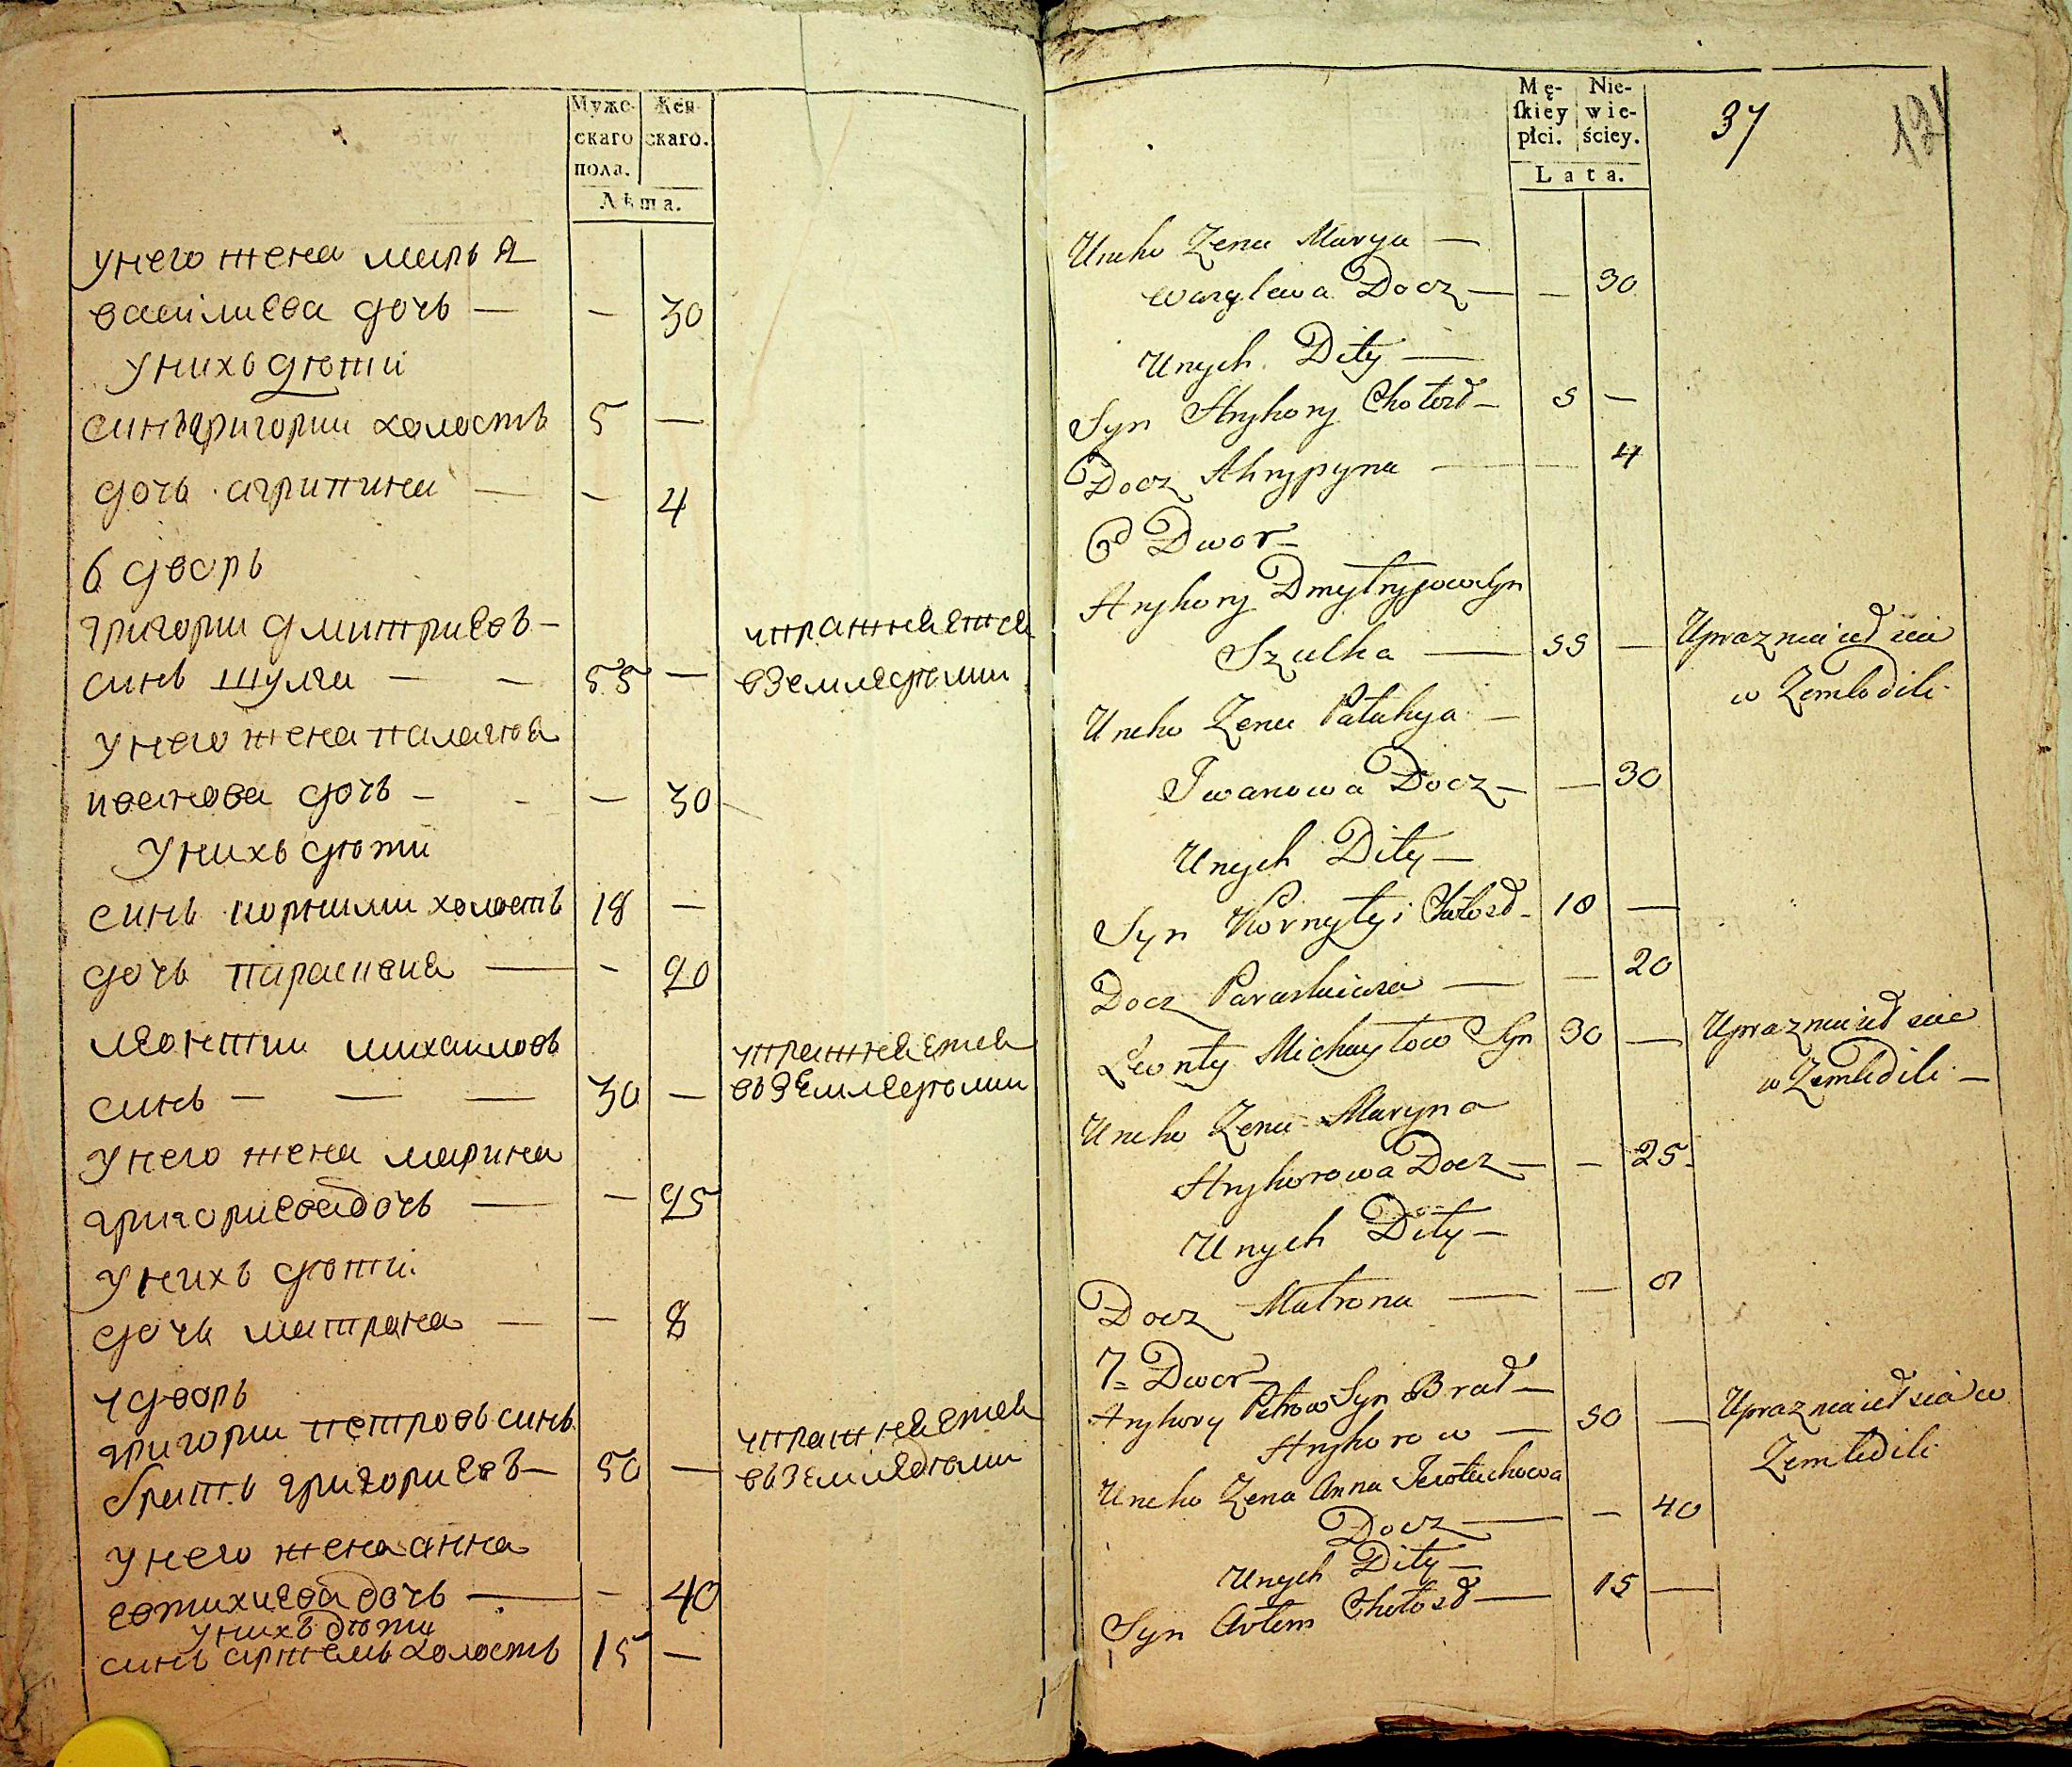 Муже-
скаго
пола.
Жен-
скаго.
Лѣта.
унего жена марья
василиева дочь — — 30
унихъ дѣти
синъ григории холостъ 5 —
дочь агрипина — — 4
6 дворъ
григории дмитриевъ —
синъ шулга — — 55 —
упражняется
вземледѣлии
унего жена палагѣя
иванова дочь — — 30
унихъ дѣти
синъ корнили холостъ 18 —
дочь параскева — — 20
леонтии михаиловъ
синъ — — — 30 —
упражняется
въземледѣлии
унего жена марина
григориева дочь — — 25
унихъ дѣти
дочь матрана — — 8
7 дворъ
григории петровъ синъ
братъ григориевъ — 50 —
упражняется
въземледѣлии
унего жена анна
евтихиева дочь — — 40
унихъ дѣти
синъ артемъ холостъ 15 —
Mę-
skiey
płci.
Nie-
wie-
ściey.
Lata.
37
Uneho Żena Marya —
Wasylewa Docz — — 30
Unych Dity —
Syn Hryhory Chołost — 5 —
Docz Ahrypyna — — 4
6 Dwor —
Hryhory Dmytryjow Syn
Szulha — 55 —
Uprazniaietsia
w Zemledili
Uneho Żena Pałahya —
Iwanowa Docz — — 30
Unych Dity —
Syn Kornyłyi Chołost — 18 —
Docz Paraskiewia — — 20
Leonty Michayłow Syn 30 —
Uprazniaietsia
w Zemledili —
Uneho Żena Maryna
Hryhorowa Docz — — 25
Unych Dity —
Docz Matrona — — 8
7 Dwor —
Hryhory Petrow Syn Brat —
Hryhorow — 50 —
Uprazniaietsia w
Zemledili
Uneho Żena Anna
Docz — — 40
Unych Dity —
Syn Artem Chołost — 15 —